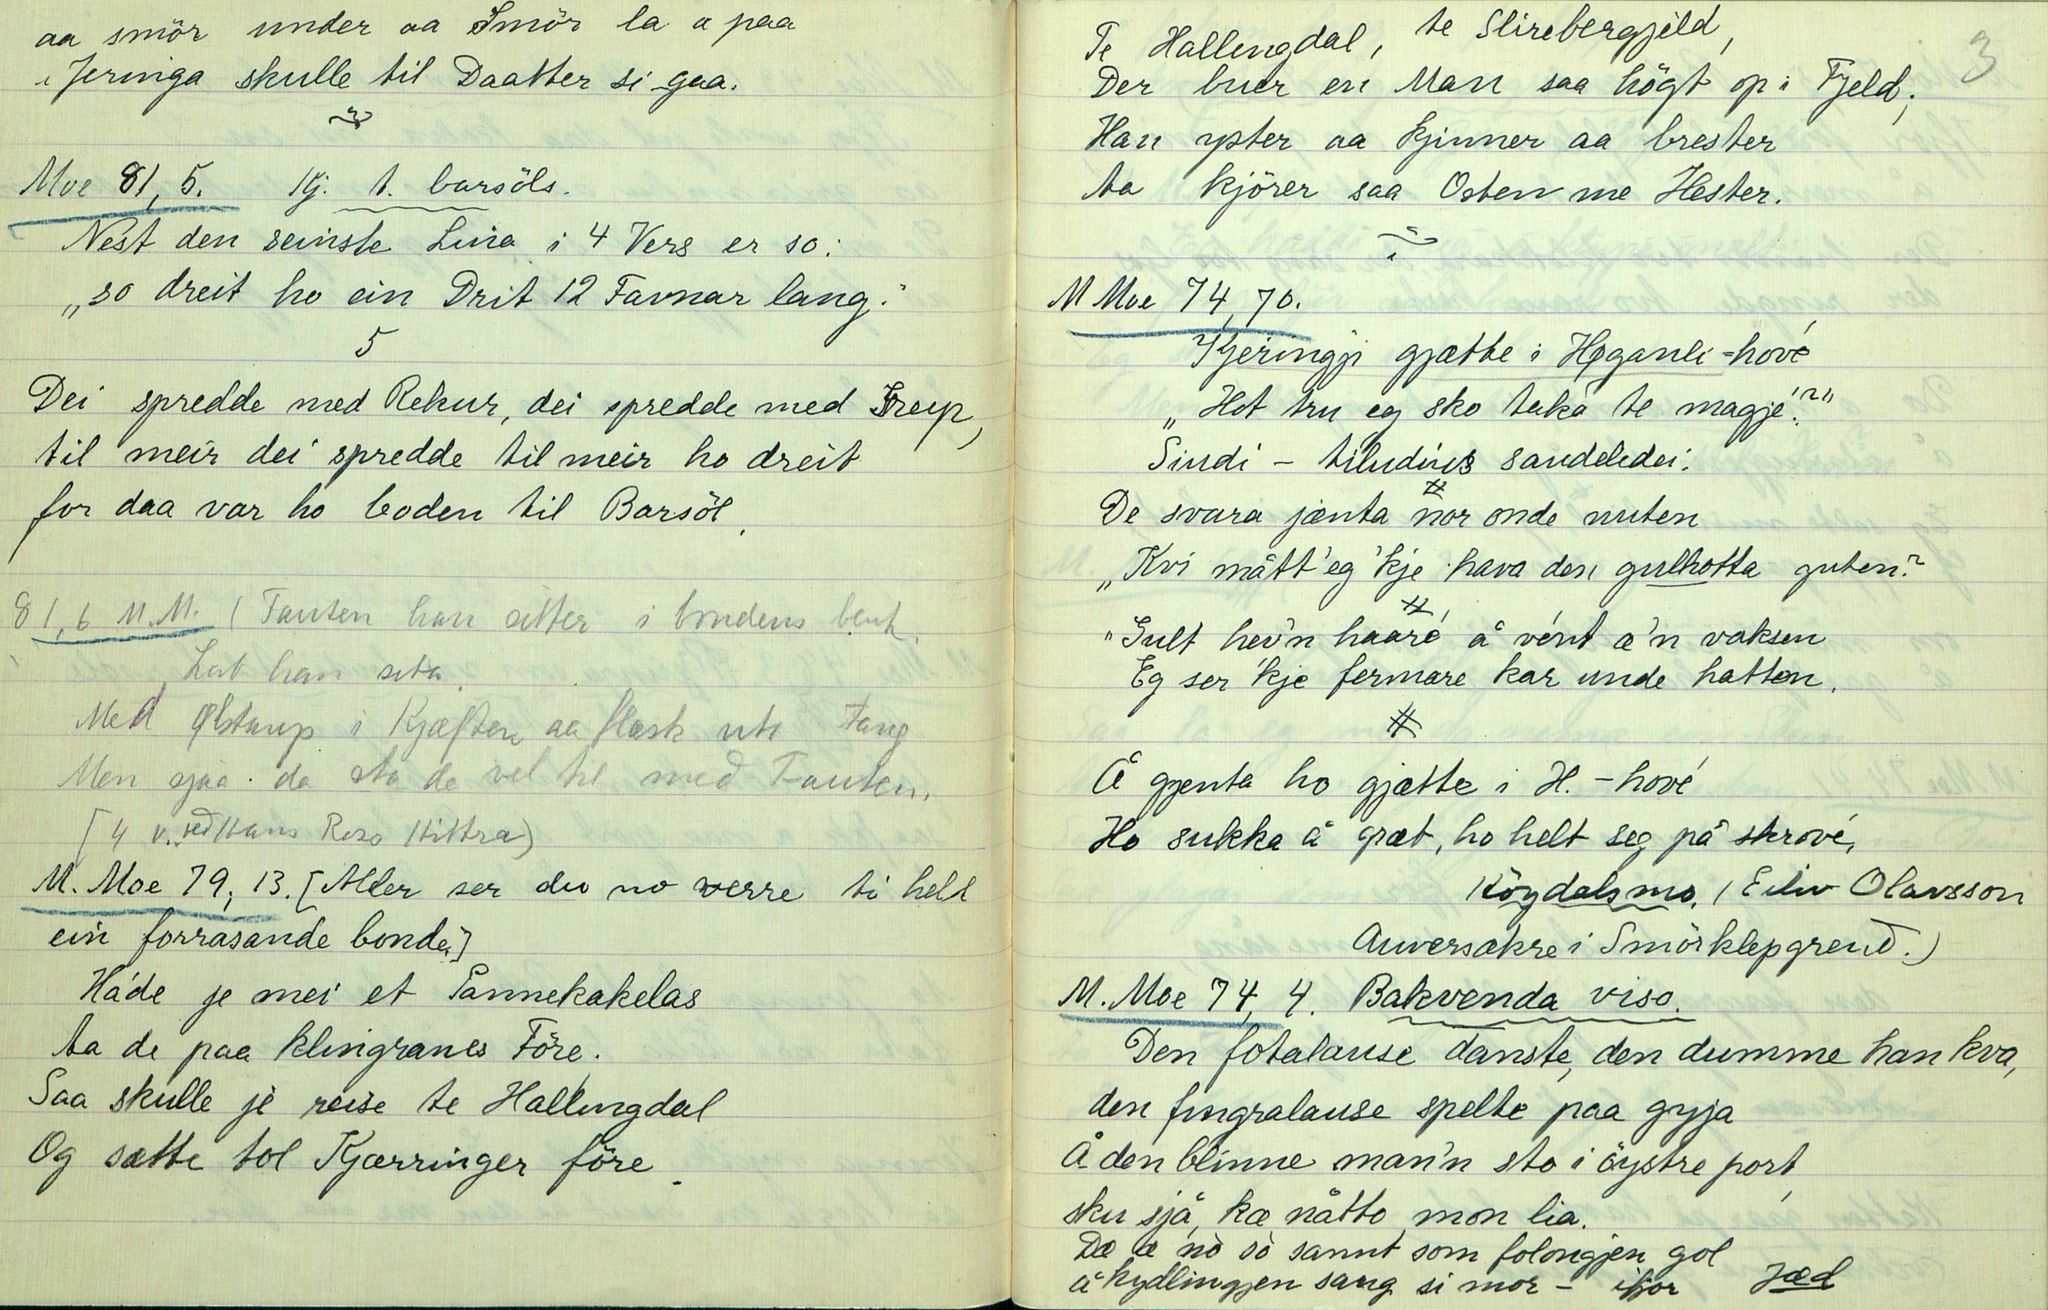 aa smör under aa Smör la a paa
Jeringa skulle til Daatter si gaa.
Moe 81, 5. Kj. t. barsöls.
Nest den seinste Lina i 4 Vers er so:
„so dreit ho ein Drit 12 Famnar lang."
5
Dei spredde med Rekur, dei spredde med Greip,
til meir dei spredde til meir ho dreit
for daa var ho boden til Barsöl.
81, 6 M.M. (Fauten han sitter i bondens benk
Lat han sita.
Med Ølstaup i Kjæften aa flæsk uti Fang
Men sjaa da sto de vel til med Fauten.
[4 v. ved Hans Ross Kittra)
M. Moe 79, 13. [Aller ser du no verre ti held
ein forrasande bonde]
Háde je mei et Pannekakelas
ta de paa klingranes Före.
Saa skulle je reise te Hallingdal
Og sætte tol Kjærringer före.
3
Te Hallingdal, te Slirebergjeld,
Der buer en Man saa högt op i Fjeld,
Han yster aa kjinner aa brester
ta kjörer saa Osten me Hester.
M Moe 74, 70.
Kjeringji gjætte i Høganli-hové
„Hot tru eg sko taka te magje?"
Sindi – tiludius saudeledei.
De svara jænta nor onde nuten
„Kvi mått'eg'kje hava den gulhotta guten?
"Gult hev'n haaré å vént æ'n vaksen
Eg ser'kje fermare kar unde hatten.
Å gjenta ho gjætte i H.-hové
Ho sukka å græt, ho helt seg på skrové,
Höydalsmo. (Eiliv Olavsson
Auversakre i Smörklepgrend.)
M. Moe 74, 4. Bakvenda viso.
Den fotalause danste, den dumme han kva,
den fingralause spelte paa gyja
Å den blinne man'n sto i öystre port
sku sjå, kæ nåtto mon lia.
Dæ æ nò sò sannt som folongjen gol
å kydlingjen sang si mor – ifjor Jæd